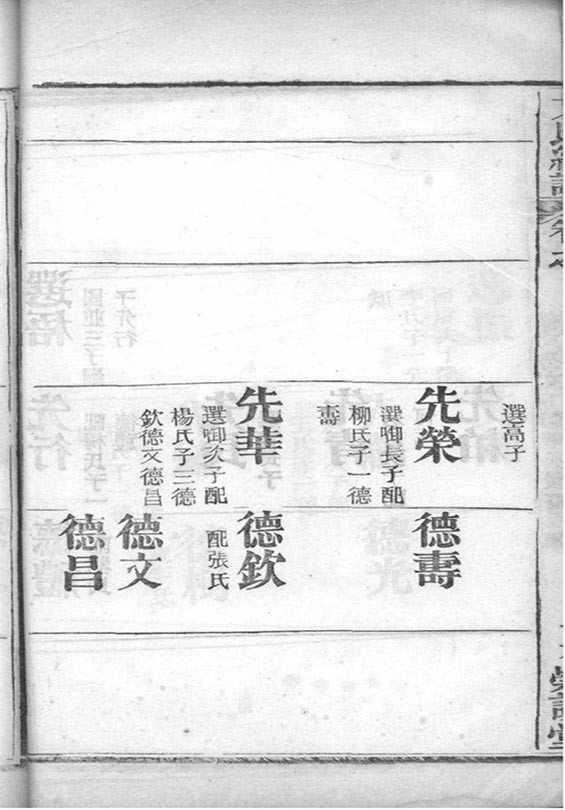 選高子
先榮
選啣長子配
柳氏子一德
壽
先華
選啣次子配
楊氏子三德
欽德文德昌
德壽
德欽
配張氏
德文
德昌